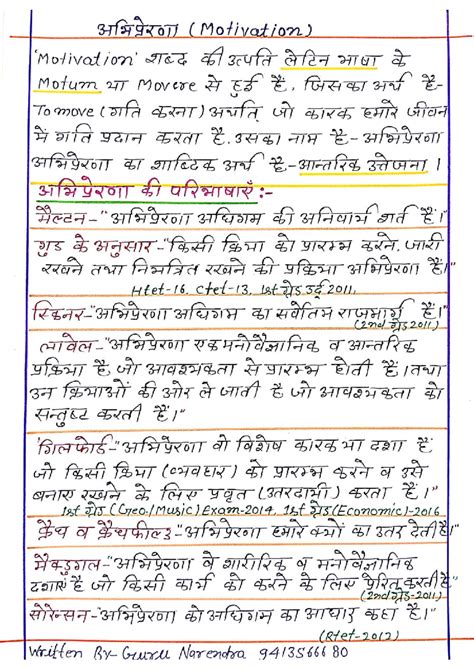 अभिप्रेरणा (Motivation)
'Motivation' शब्द की उत्पति लेटिन भाषा के
Motum या Movere से हुई हैं, जिसका अर्थ है-
To move (गति करना) अर्थात्, जो कारक हमारे जीवन
में गति प्रदान करता है, उसका नाम है- अभिप्रेरणा
अभिप्रेरणा का शाब्दिक अर्थ है- आन्तरिक उत्तेजना।
अभिप्रेरणा की परिभाषाएँ:-
मैल्टन-"अभिप्रेरणा अधिगम की अनिवार्य शर्त हैं।"
गुड के अनुसार-"किसी क्रिया को प्रारम्भ करने, जारी
रखने तथा नियंत्रित रखने की प्रक्रिया अभिप्रेरणा हैं।"
Htet-16, Ctet-13, 1st ग्रेड उर्दू 2011,
स्किनर-"अभिप्रेरणा अधिगम का सर्वोतम राजमार्ग हैं।"
(2nd ग्रेड 2011)
लावेल-"अभिप्रेरणा एक मनोवैज्ञानिक व आन्तरिक
प्रक्रिया हैं, जो आवश्यकता से प्रारम्भ होती हैं। तथा
उन क्रियाओं की ओर ले जाती हैं, जो आवश्यकता को
सन्तुष्ट करती हैं।"
गिलफोर्ड-"अभिप्रेरणा वो विशेष कारक या दशा हैं,
जो किसी क्रिया (व्यवहार) को प्रारम्भ करने व उसे
बनाए रखने के लिए प्रवृत (उतरदायी) करता हैं।"
1st ग्रेड (Geo./Music) Exam-2014, 1st ग्रेड (Economic)-2016
क्रैच व क्रैचफील्ड-"अभिप्रेरणा हमारे क्यों का उतर देती है।"
मैक्डुगल-"अभिप्रेरणा वे शारीरिक व मनोवैज्ञानिक
दशाएं है जो किसी कार्य को करने के लिए प्रेरित करती हैं"
(2nd ग्रेड-2011)
सोरेन्सन-"अभिप्रेरणा को अधिगम का आधार कहा हैं।"
(Rtet-2012)
Written By- Guru Narendra 9413566680